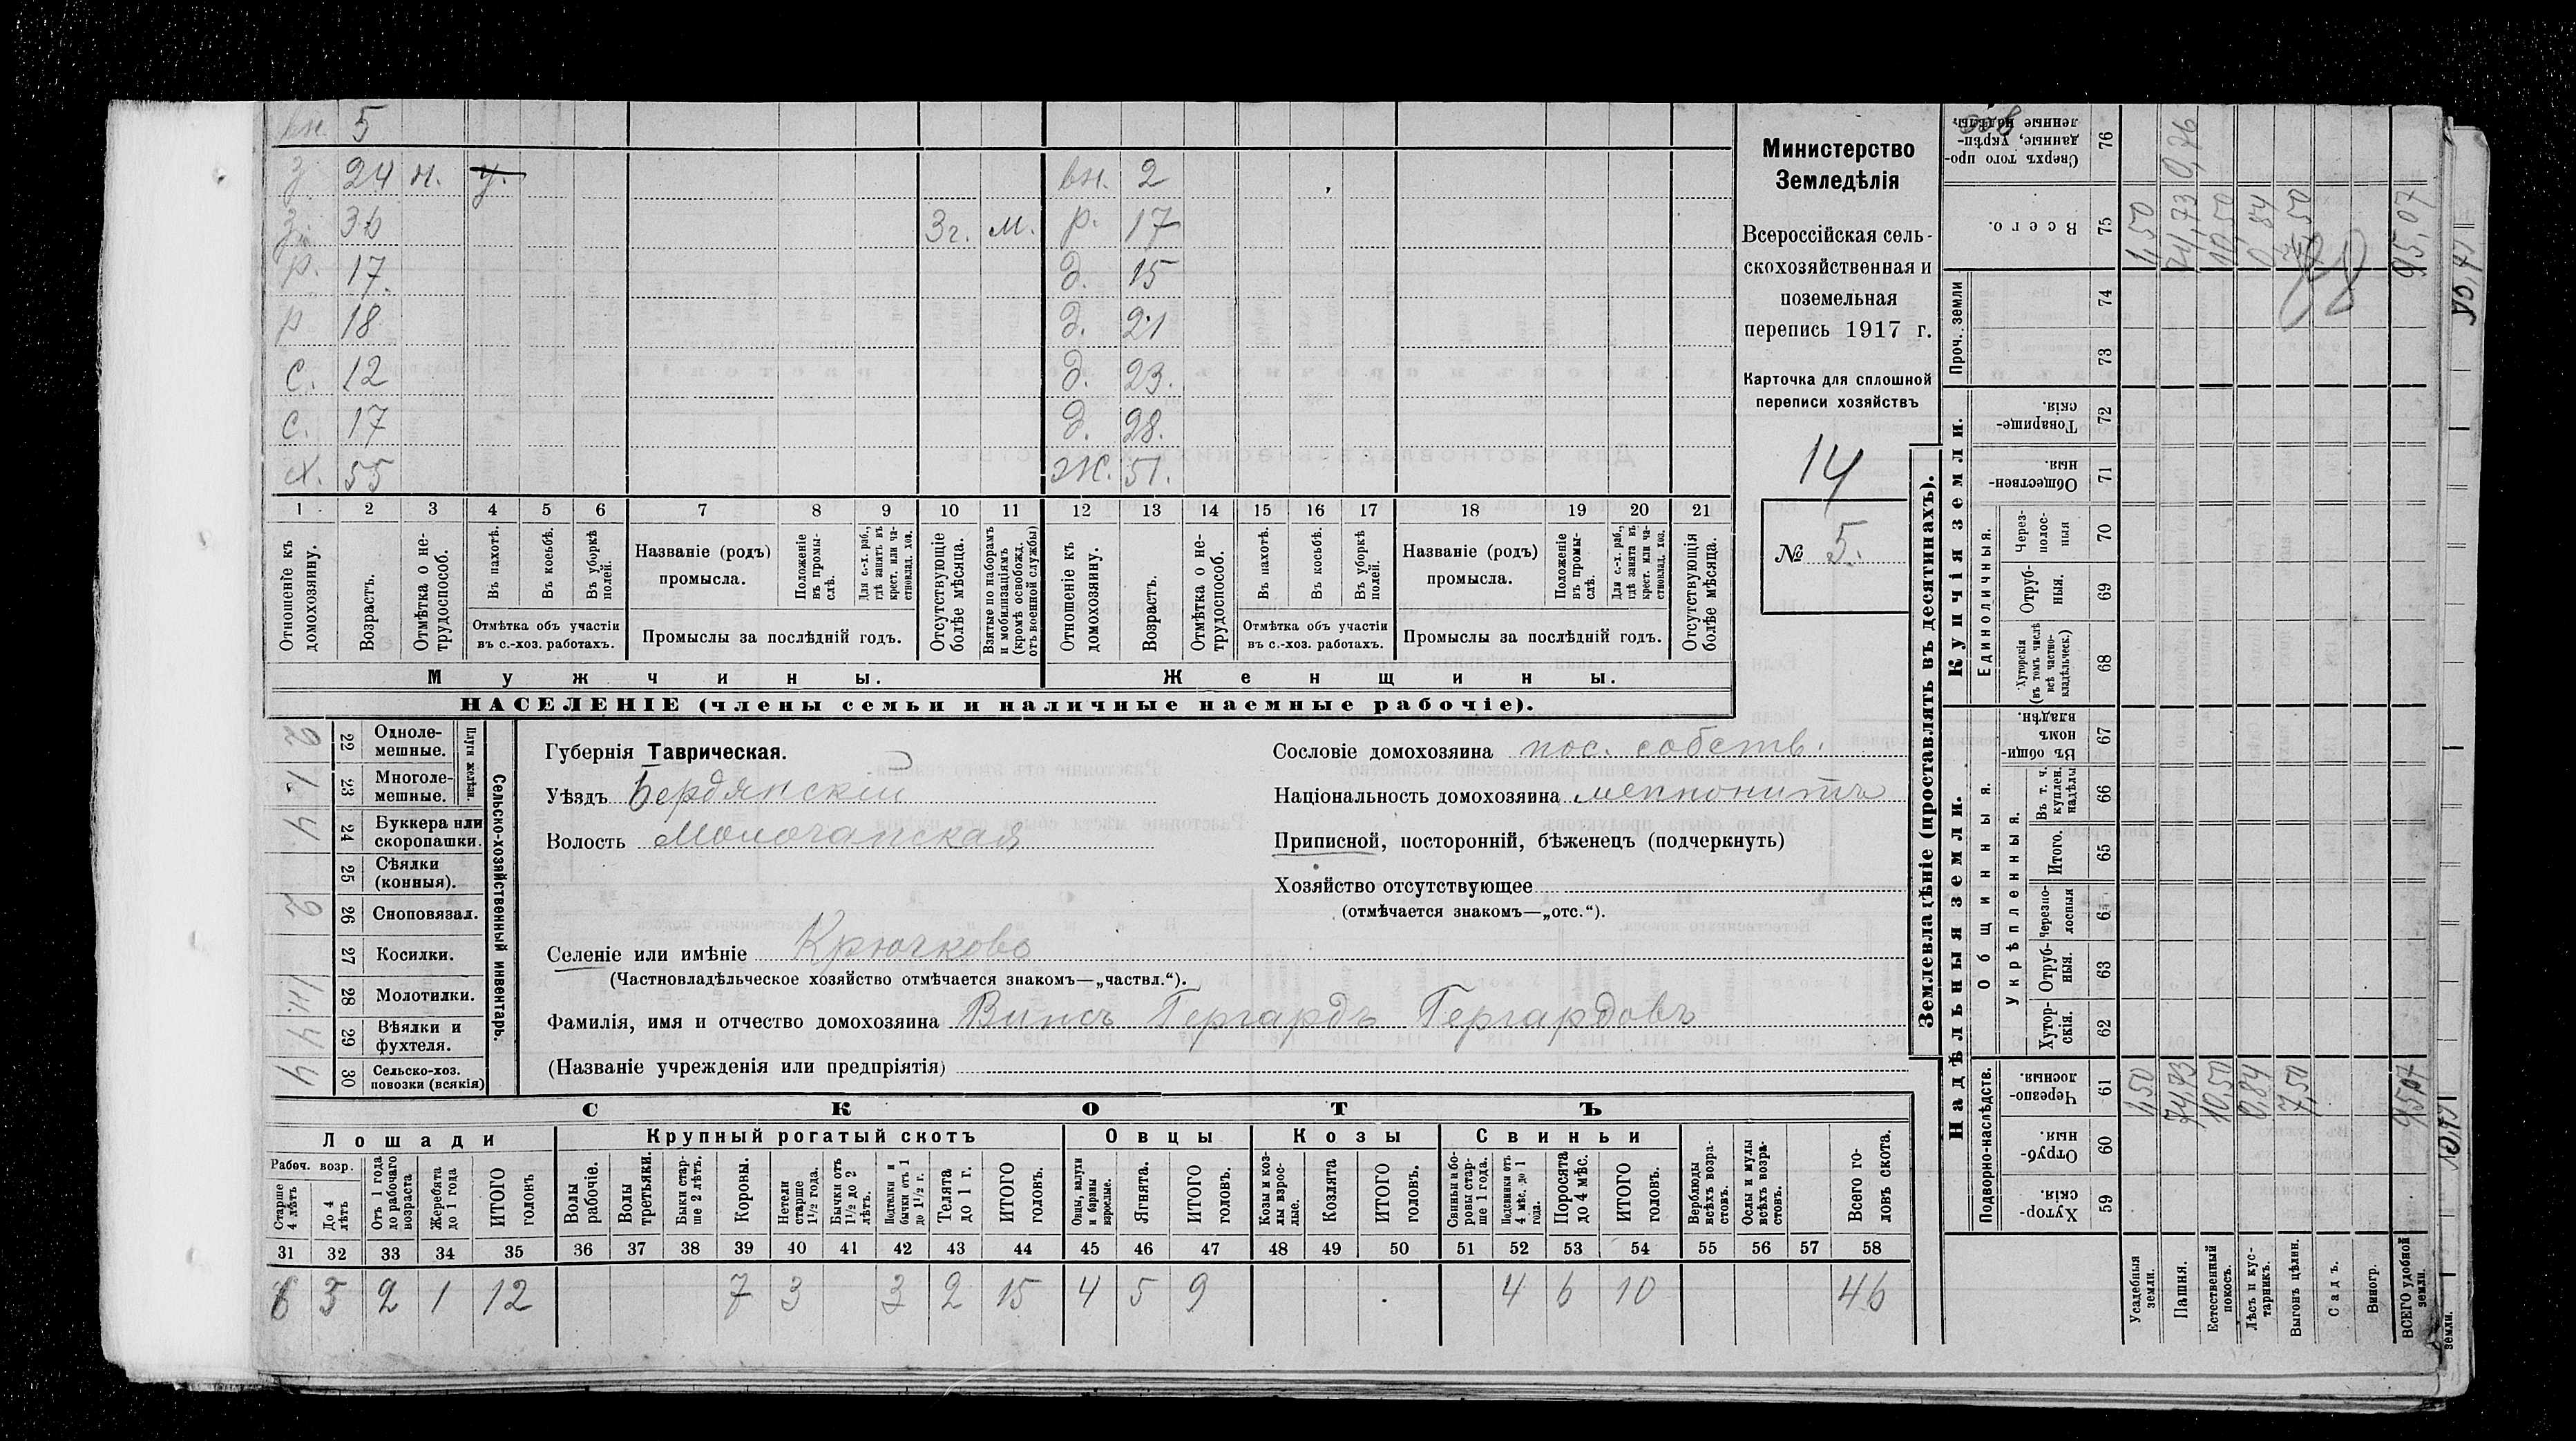 вн. 5
з. 24 н. у. вн. 2
зя. 36 3г. м. р. 17
р. 17. д. 15
р 18 д. 21
с. 12 д. 23.
с. 17 д. 28.
х. 55 ж. 51.
1 2 3 4 5 6 7 8 9 10 11 12 13 14 15 16 17 18 19 20 21
Отношеніе къ домохозяину.
Возрастъ.
Отмѣтка о не-трудоспособ.
Въ пахотѣ.
Въ косьбѣ.
Въ уборкѣ полей.
Отмѣтка объ участіи
въ с.-хоз. работахъ.
Названіе (родъ)
промысла.
Положеніе въ промы-слѣ.
Для с.-х. раб., гдѣ занятъ въ крест. или ча-стновлад. хоз.
Промыслы за послѣдній годъ.
Отсутствующіе болѣе мѣсяца.
Взятые по наборамъ и мобилизаціямъ (кромѣ освобожд. отъ военной службы)
Отношеніе къ домохозяину.
Возрастъ.
Отмѣтка о не-трудоспособ.
Въ пахотѣ.
Въ косьбѣ.
Въ уборкѣ полей.
Отмѣтка объ участіи
въ с.-хоз. работахъ.
Названіе (родъ)
промысла.
Положеніе въ промы-слѣ.
Для с.-х. раб., гдѣ занята въ крест. или ча-стновлад. хоз.
Промыслы за послѣдній годъ.
Отсутствующія болѣе мѣсяца.
Мужчины. Женщины.
НАСЕЛЕНІЕ (члены семьи и наличные наемные рабочіе).
Министерство
Земледѣлія
Всероссійская сель-
скохозяйственная и
поземельная
перепись 1917 г.
Карточка для сплошной
переписи хозяйствъ
14
№ 5.
Сельско-хозяйственный инвентарь.
Плуги желѣзн.
22 Одноле-мешные. 2
23 Многоле-мешные. 1
24 Буккера или скоропашки. 4
25 Сѣялки (конныя).
26 Сноповязал. 2
27 Косилки.
28 Молотилки.
29 Вѣялки и фухтеля.
30 Сельско-хоз. повозки (всякія) 4
Губернія Таврическая.
Уѣздъ Бердянскій
Волость Молочанская
Сословіе домохозяина пос. собств.
Національность домохозяина меннонитъ
Приписной, посторонній, бѣженецъ (подчеркнуть)
Хозяйство отсутствующее
(отмѣчается знакомъ—„отс.“).
Селеніе или имѣніе Крючково
(Частновладѣльческое хозяйство отмѣчается знакомъ—„частвл.“).
Фамилія, имя и отчество домохозяина Винсъ Гергардъ Гергардовъ
(Названіе учрежденія или предпріятія)
СКОТЪ
Лошади Крупный рогатый скотъ Овцы Козы Свиньи
Рабоч. возр.
Старше 4 лѣтъ
До 4 лѣтъ
Отъ 1 года до рабочаго возраста
Жеребята до 1 года
ИТОГО головъ
Волы рабочіе.
Волы третьяки.
Быки стар-ше 2 лѣтъ.
Коровы.
Нетели старше 1 1/2 года.
Бычки отъ 1 1/2 до 2 лѣтъ.
Подтелки и бычки отъ 1 до 1 1/2 г.
Телята до 1 г.
ИТОГО головъ.
Овцы, валухи и бараны взрослые.
Ягнята.
ИТОГО головъ.
Козы и коз-лы взрос-лые.
Козлята
ИТОГО головъ.
Свиньи и бо-ровы стар-ше 1 года.
Подсвинки отъ 4 мѣс. до 1 года.
Поросята до 4 мѣс.
ИТОГО головъ.
Верблюды всѣхъ возра-стовъ.
Ослы и мулы всѣхъ возра-стовъ.
Всего го-ловъ скота.
31 32 33 34 35 36 37 38 39 40 41 42 43 44 45 46 47 48 49 50 51 52 53 54 55 56 57 58
6 3 2 1 12 7 3 3 2 15 4 5 9 4 6 10 46
Землевладѣніе (проставлять въ десятинахъ).
Надѣльныя земли. Купчія земли.
Подворно-наслѣдств. Общинныя. Укрѣпленныя. Единоличныя. Проч. земли
59 Хутор-скія.
60 Отруб-ныя.
61 Черезпо-лосныя.
62 Хутор-скія.
63 Отруб-ныя.
64 Черезпо-лосныя
65 Итого.
66 Въ т. ч. куплен. надѣлы
67 Въ общин-номъ владѣн.
68 Хуторскія (въ томъ числѣ всѣ частно-владѣльческ.)
69 Отруб-ныя.
70 Через-полос-ныя
71 Обществен-ныя.
72 Товарище-скія.
73
74
75 Всего.
76 Сверхъ того про-данные, укрѣп-ленные надѣлы.
Усадебныя земли. 1,50 1,50
Пашня. 74,73 74,73
Естественный покосъ. 10,50 10,50
Лѣсъ и кус-тарникъ. 0,84 0,84
Выгонъ цѣлин. 7,50 7,50
Садъ.
Виногр.
ВСЕГО удобной земли. 95,07 95,07
земли.